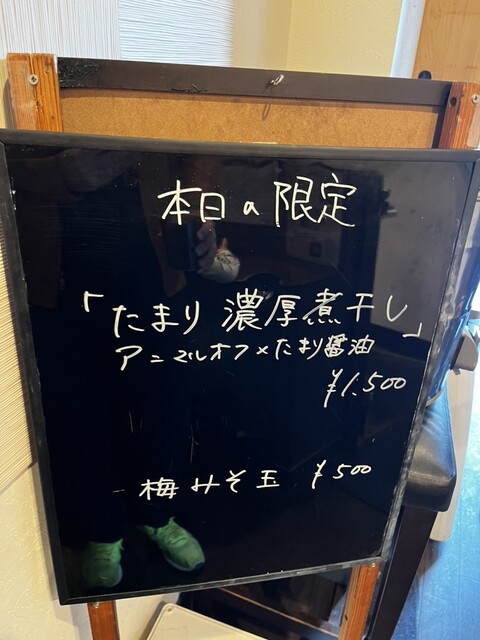 本日の限定
「たまり 濃厚煮干し」
アニマルオフ×たまり醤油
¥1.500
梅みそ玉 ¥500